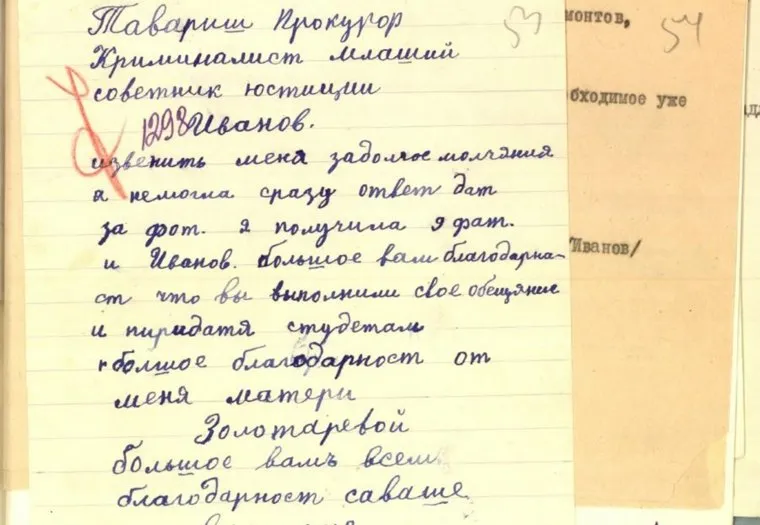 Тавариш Прокурор
Криминалист млаший
советник юстиции
1298 Иванов.
извенить меня задолчое молчания
я немогла сразу ответ дат
за фот. я получила 9 фат.
и Иванов. большое вам благодарна-
ст что вы выполнили свое обещяние
и пиридатя студетам
болшое благодарност от
меня матери
Золотаревой
большое вамъ всем
благодарност саваше
53
монтов,
54
бходимое уже
Иванов/